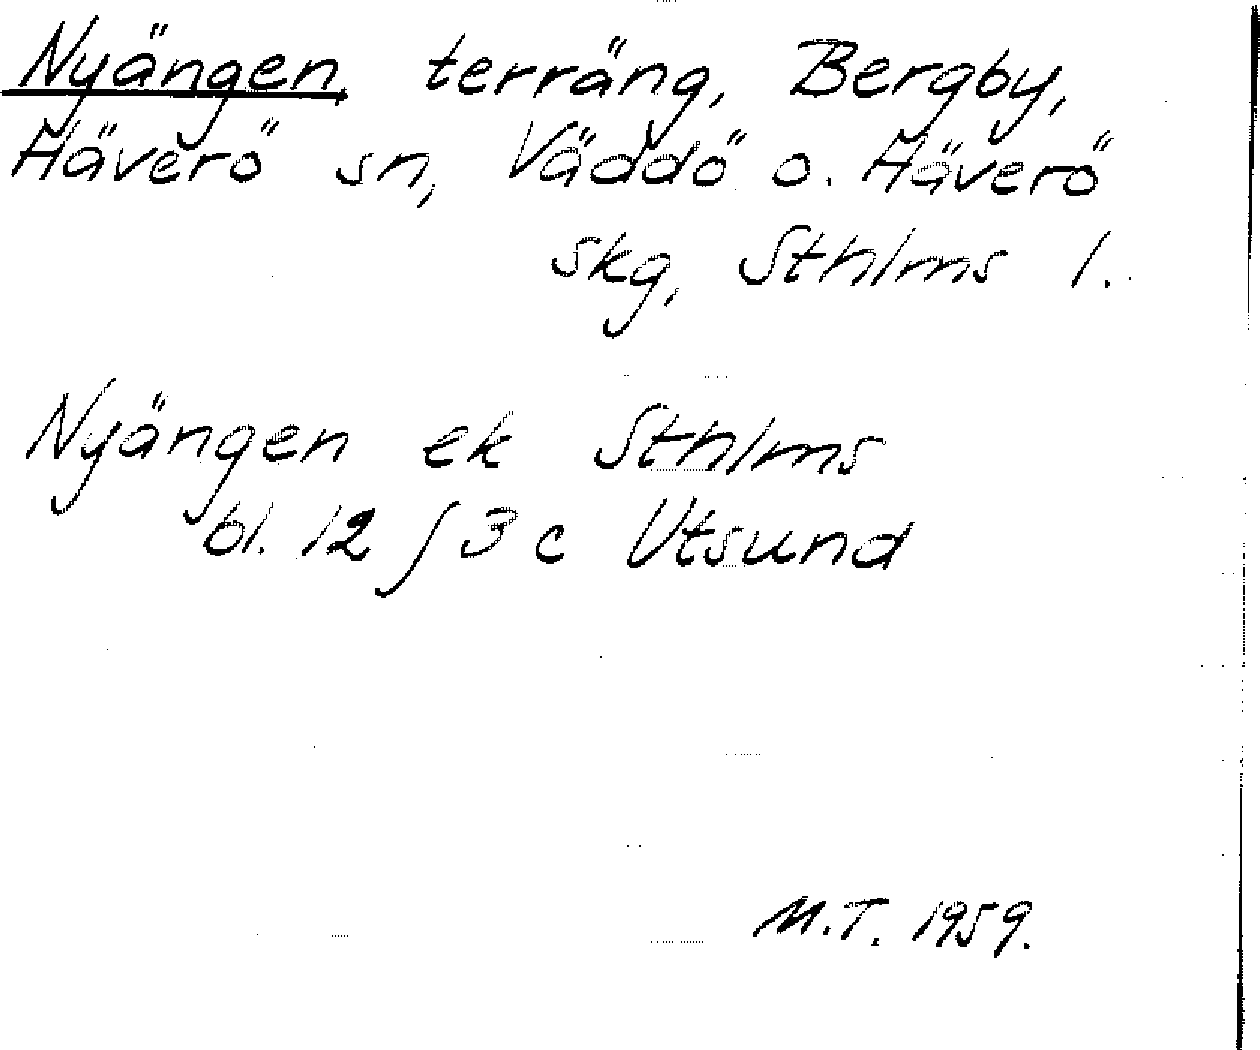 Nyängen, terräng, Bergby,
Häverö sn, Väddö o. Häverö
skg, Sthlms l.
Nyängen ek Sthlms
bl. 12 ∫ 3 c Utsund
M.T. 1959.